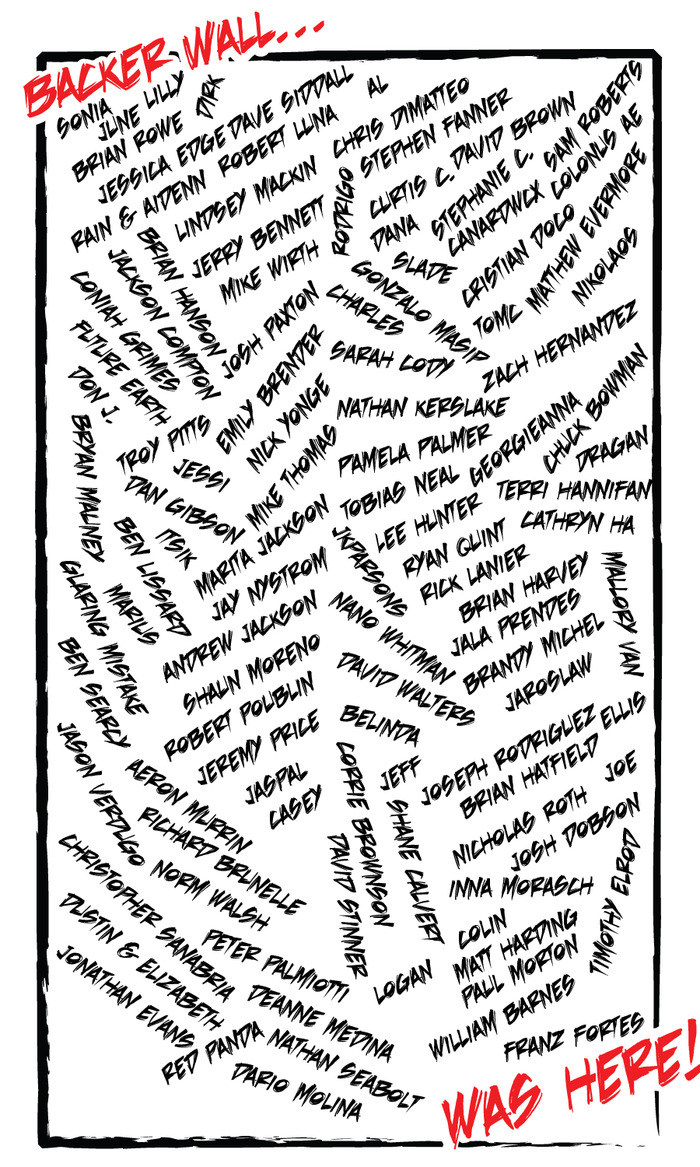 BACKER WALL...
SONIA
JUNE LILLY
DIRK
BRIAN ROWE
JESSICA EDGE
DAVE SIDDALL
AL
RAIN & AIDENN
ROBERT LUNA
CHRIS DIMATTEO
STEPHEN FANNER
LINDSEY MACKIN
RODRIGO
CURTIS C.
DAVID BROWN
SAM ROBERTS
JERRY BENNETT
DANA
STEPHANIE C.
CANARDWCX
COLONUS AE
MIKE WIRTH
SLADE
CRISTIAN DOCO
BRIAN HANSON
JACKSON COMPTON
CONIAH GRIMES
FUTURE EARTH
DON J.
GONZALO MASIP
CHARLES
TOMC
MATTHEW EVERMORE
NIKOLAOS
JOSH PAXTON
SARAH CODY
ZACH HERNANDEZ
EMILY BRENDER
NICK YONGE
NATHAN KERSLAKE
TROY PITTS
JESSI
BRYAN MAUNEY
DAN GIBSON
MIKE THOMAS
PAMELA PALMER
GEORGIEANNA
CHUCK BOWMAN
DRAGAN
TOBIAS NEAL
TERRI HANNIFAN
ITSIK
BEN LISSARD
MARITA JACKSON
LEE HUNTER
CATHRYN HA
JKPARSONS
RYAN QUINT
JAY NYSTROM
RICK LANIER
GLARING MISTAKE
MARILS
NANO WHITMAN
BRIAN HARVEY
MALLORY VAN
ANDREW JACKSON
JALA PRENDES
BEN SEARCY
SHAUN MORENO
DAVID WALTERS
BRANDY MICHEL
JAROSLAW
ROBERT POUBLIN
BELINDA
JEREMY PRICE
JASON VERDUGO
JASPAL
CASEY
CORRIE BROWNSON
JEFF
JOSEPH RODRIGUEZ
ELLIS
BRIAN HATFIELD
JOE
AERON MURRIN
RICHARD BRUNELLE
SHANE CALVERT
NICHOLAS ROTH
JOSH DOBSON
NORM WALSH
DAVID STINNER
INNA MORASCH
TIMOTHY ELROD
CHRISTOPHER SANABRIA
COLIN
PETER PALMIOTTI
DUSTIN & ELIZABETH
LOGAN
MATT HARDING
PAUL MORTON
DEANNE MEDINA
JONATHAN EVANS
WILLIAM BARNES
RED PANDA
NATHAN SEABOLT
FRANZ FORTES
DARIO MOLINA
WAS HERE!